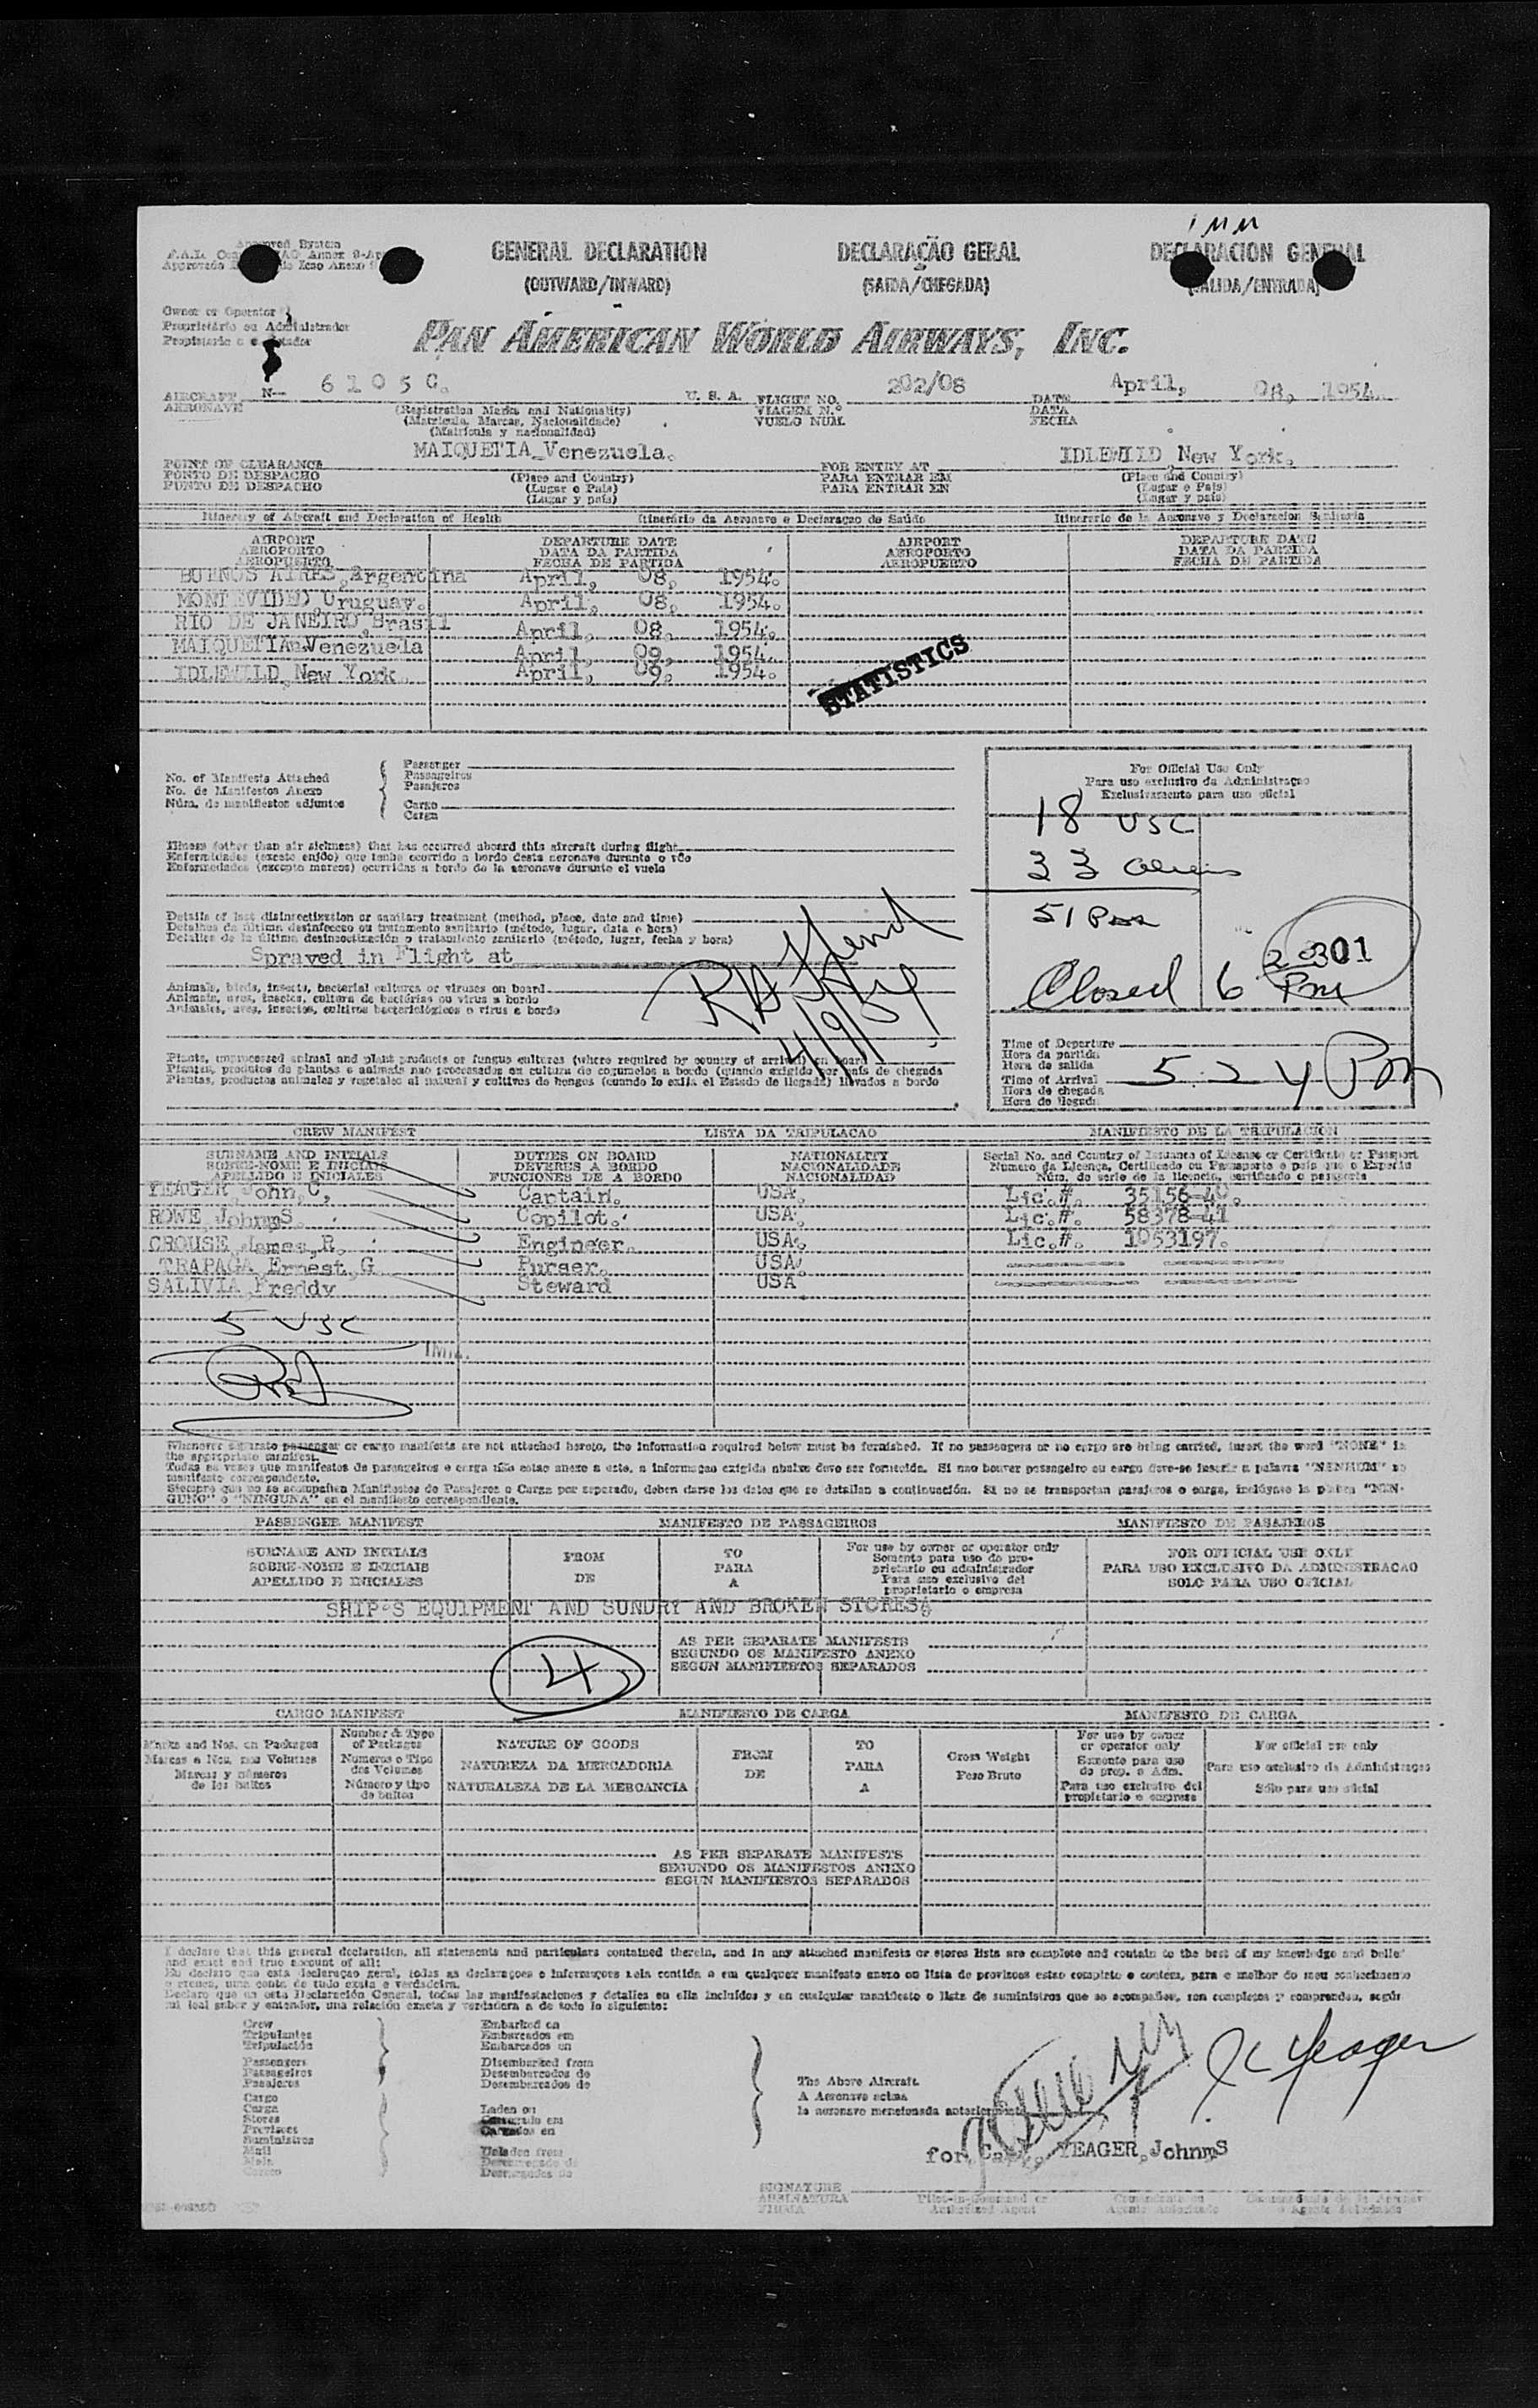 Approved System
GENERAL DECLARATION DECLARAÇÃO GERAL DECLARACION GENERAL
(OUTWARD/INWARD) (SAIDA/CHEGADA) (SALIDA/ENTRADA)
Owner or Operator
Proprietário ou Administrador
PAN AMERICAN WORLD AIRWAYS, INC.
AIRCRAFT N— 6105C. U. S. A. FLIGHT NO. 202/08 DATE April, 08, 1954.
AERONAVE VIAGEM N.º DATA
VUELO NUM. FECHA
(Registration Marks and Nationality)
(Matricula, Marcas, Nacionalidade)
(Matrícula y nacionalidad)
POINT OF CLEARANCE MAIQUETIA, Venezuela. FOR ENTRY AT IDLEWILD, New York.
PONTO DE DESPACHO (Place and Country) PARA ENTRAR EM (Place and Country)
PUNTO DE DESPACHO (Lugar e Pais) PARA ENTRAR EN (Lugar e Pais)
(Lugar y país) (Lugar y país)
Itinerary of Aircraft and Declaration of Health Itinerário da Aeronave e Declaraçao de Saúde Itinerario de la Aeronave y Declaracion Sanitaria
AIRPORT DEPARTURE DATE AIRPORT DEPARTURE DATE
AEROPORTO DATA DA PARTIDA AEROPORTO DATA DA PARTIDA
AEROPUERTO FECHA DE PARTIDA AEROPUERTO FECHA DE PARTIDA
BUENOS AIRES, Argentina April, 08, 1954.
MONTEVIDEO, Uruguay. April, 08, 1954.
RIO DE JANEIRO, Brasil April, 08, 1954.
MAIQUETIA, Venezuela April, 09, 1954.
IDLEWILD, New York. April, 09, 1954.
STATISTICS
No. of Manifests Attached
No. de Manifestos Anexo
Núm. de manifiestos adjuntos
Passenger
Passageiros
Pasajeros
Cargo
Carga
For Official Use Only
Para uso exclusivo da Administraçao
Exclusivamente para uso oficial
18 USC
33 aliens
51 Pax
Closed 6 Pm
301
Illness (other than air sickness) that has occurred aboard this aircraft during flight
Enfermidades (exceto enjôo) que tenha ocorrido a bordo desta aeronave durante o vôo
Enfermedades (excepto mareos) ocurridas a bordo de la aeronave durante el vuelo
Details of last disinsectization or sanitary treatment (method, place, date and time)
Detalhes da última desinfeccao ou tratamento sanitario (método, lugar, data e hora)
Detalles de la última desinsectización o tratamiento sanitario (método, lugar, fecha y hora)
Sprayed in Flight at
4/9/54
Animals, birds, insects, bacterial cultures or viruses on board
Animais, aves, insetos, cultura de bactérias ou virus a bordo
Animales, aves, insectos, cultivos bacteriológicos o virus a bordo
Plants, unprocessed animal and plant products or fungus cultures (where required by country of arrival) on board
Plantas, produtos de plantas e animais nao processados ou cultura de cogumelos a bordo (quando exigido por país de chegada
Plantas, productos animales y vegetales al natural y cultivos de hongos (cuando lo exija el Estado de llegada) llevados a bordo
Time of Departure
Hora da partida
Hora de salida
Time of Arrival 5:24 Pm
Hora de chegada
Hora de llegada
CREW MANIFEST LISTA DA TRIPULACAO MANIFIESTO DE LA TRIPULACION
SURNAME AND INITIALS DUTIES ON BOARD NATIONALITY Serial No. and Country of Issuance of License or Certificate or Passport
SOBRE-NOME E INICIAIS DEVERES A BORDO NACIONALIDADE Numero da Licença, Certificado ou Passaporte e pais que o Expediu
APELLIDO E INICIALES FUNCIONES DE A BORDO NACIONALIDAD Núm. de serie de la licencia, certificado o pasaporte
YEAGER, John, C, Captain. USA. Lic.#. 35156-40.
ROWE, JohnmS. Copilot. USA. Lic.#. 58378-41
CROUSE, James, R. Engineer. USA. Lic.#. 1053197.
TRAPAGA, Ernest, G. Purser. USA.
SALIVIA, Freddy Steward USA
5 USC
IMM.
Whenever separate passenger or cargo manifests are not attached hereto, the information required below must be furnished. If no passengers or no cargo are being carried, insert the word "NONE" in
the appropriate manifest.
Todas as vezes que manifestos de passageiros e carga não estao anexo a este, a informaçao exigida abaixo deve ser fornecida. Si nao houver passageiro ou carga deve-se inserir a palavra "NENHUM" no
manifesto correspondente.
Siempre que no se acompañen Manifiestos de Pasajeros o Carga por separado, deben darse los datos que se detallan a continuación. Si no se transportan pasajeros o carga, inclúyase la palabra "NIN-
GUNO" o "NINGUNA" en el manifiesto correspondiente.
PASSENGER MANIFEST MANIFESTO DE PASSAGEIROS MANIFIESTO DE PASAJEROS
SURNAME AND INITIALS FROM TO For use by owner or operator only FOR OFFICIAL USE ONLY
SOBRE-NOME E INICIAIS DE PARA Somente para uso do pro- PARA USO EXCLUSIVO DA ADMINISTRACAO
APELLIDO E INICIALES A prietario ou administrador SOLO PARA USO OFICIAL
Para uso exclusivo del
proprietario o empresa
SHIP'S EQUIPMENT AND SUNDRY AND BROKEN STORES
AS PER SEPARATE MANIFESTS
SEGUNDO OS MANIFESTO ANEXO
SEGUN MANIFIESTOS SEPARADOS
4
CARGO MANIFEST MANIFIESTO DE CARGA MANIFIESTO DE CARGA
Marks and Nos. on Packages Number & Type of Packages NATURE OF GOODS FROM TO Gross Weight For use by owner or operator only For official use only
Marcas e Nos. nos Volumes Numeros o Tipo dos Volumes NATUREZA DA MERCADORIA DE PARA Peso Bruto Somente para uso do prop. e Adm. Para uso exclusivo da Administraçao
Marcas y números de los bultos Número y tipo de bultos NATURALEZA DE LA MERCANCIA A Para uso exclusivo del propietario o empresa Sólo para uso oficial
AS PER SEPARATE MANIFESTS
SEGUNDO OS MANIFESTOS ANEXO
SEGUN MANIFIESTOS SEPARADOS
I declare that this general declaration, all statements and particulars contained therein, and in any attached manifests or stores lists are complete and contain to the best of my knowledge and belief
and exact and true account of all:
Eu declaro que esta declaraçao geral, todas as declaraçoes e informaçoes nela contida e em qualquer manifesto anexo ou lista de provisoes estao completo e contem, para o melhor do meu conhecimento
e crença, uma conta de tudo exata e verdadeira.
Declaro que en esta Declaración General, todas las manifestaciones y detalles en ella incluídos y en cualquier manifiesto o lista de suministros que se acompañen, son completos y comprenden, según
mi leal saber y entender, una relación exacta y verdadera a de todo lo siguiente:
Crew Embarked on
Tripulantes Embarcados em
Tripulación Embarcados en
Passengers Disembarked from
Passageiros Desembarcados de
Pasajeros Desembarcados de
Cargo
Carga Laden on
Stores
Suministros
Mail Unladen from
The Above Aircraft
A Aeronave acima
la aeronave mencionada anteriormente
J C Yeager
for YEAGER, JohnmS
SIGNATURE Pilot-in-Command or
ASSINATURA Authorized Agent
FIRMA